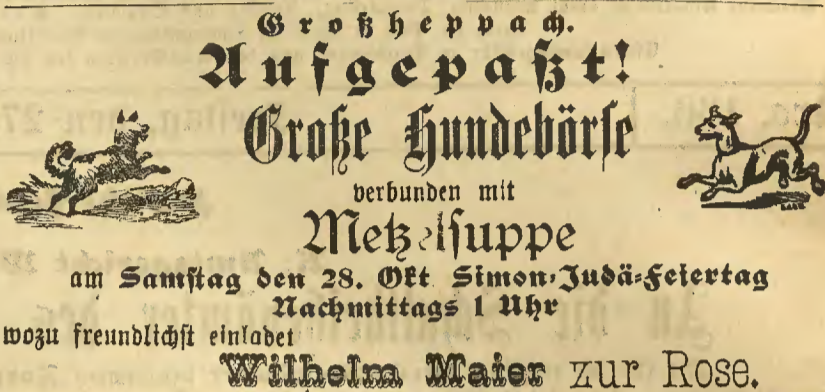 Großheppach.
Aufgepaßt!
Große Hundebörse
verbunden mit
Metzelsuppe
am Samstag den 28. Okt Simon-Judä-Feiertag
Nachmittags 1 Uhr
wozu freundlichst einladet
Wilhelm Maier zur Rose.